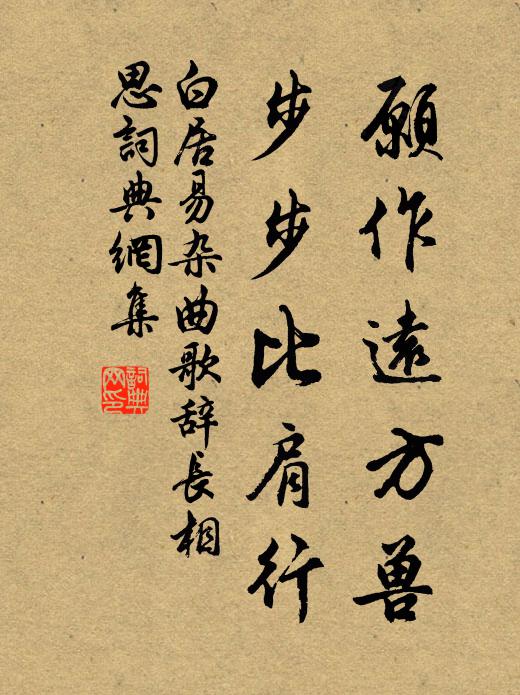 願作遠方兽
步步比肩行
白居易杂曲歌辞長相
思詞典網集
詞典
网印